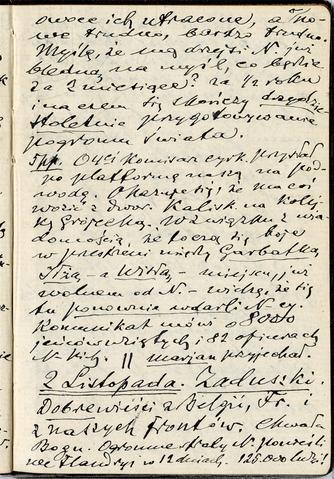 owoce ich utracone, a no-
we trudno, bardzo trudno.
Myślę, że mądrzejsi N. już
bledną na myśl, co będzie
za 2 miesiące? za 1/2 roku
i na czem się skończy
stoletnie przygotowywanie
pogromu świata.
5 pp. O 4ej komisarz cyrk. przysłał
po platformę naszą na pod-
wodę. Okazuje się, że ma coś
wozić z dwor. Kalisk. na kolej-
kę Grójecką. W związku z wia-
domością, że toczą się boje
w przestrzeni między Garbatką,
Iłżą – a Wisłą – miejscu, już
wolnem od N. – widzę, że tu
tu ponownie wdarli N-cy.
Komunikat mówi o 8000
jeńców wziętych i 82 oficerach
N-kich. || Marjan przyjechał.
2 Listopada. Zaduszki.
Dobre wieści z Belgii, Fr. i
z naszych frontów. Chwała
Bogu. Ogromne straty N. ponieśli
we Flandryi w 12 dniach. 125.000 ludzi!